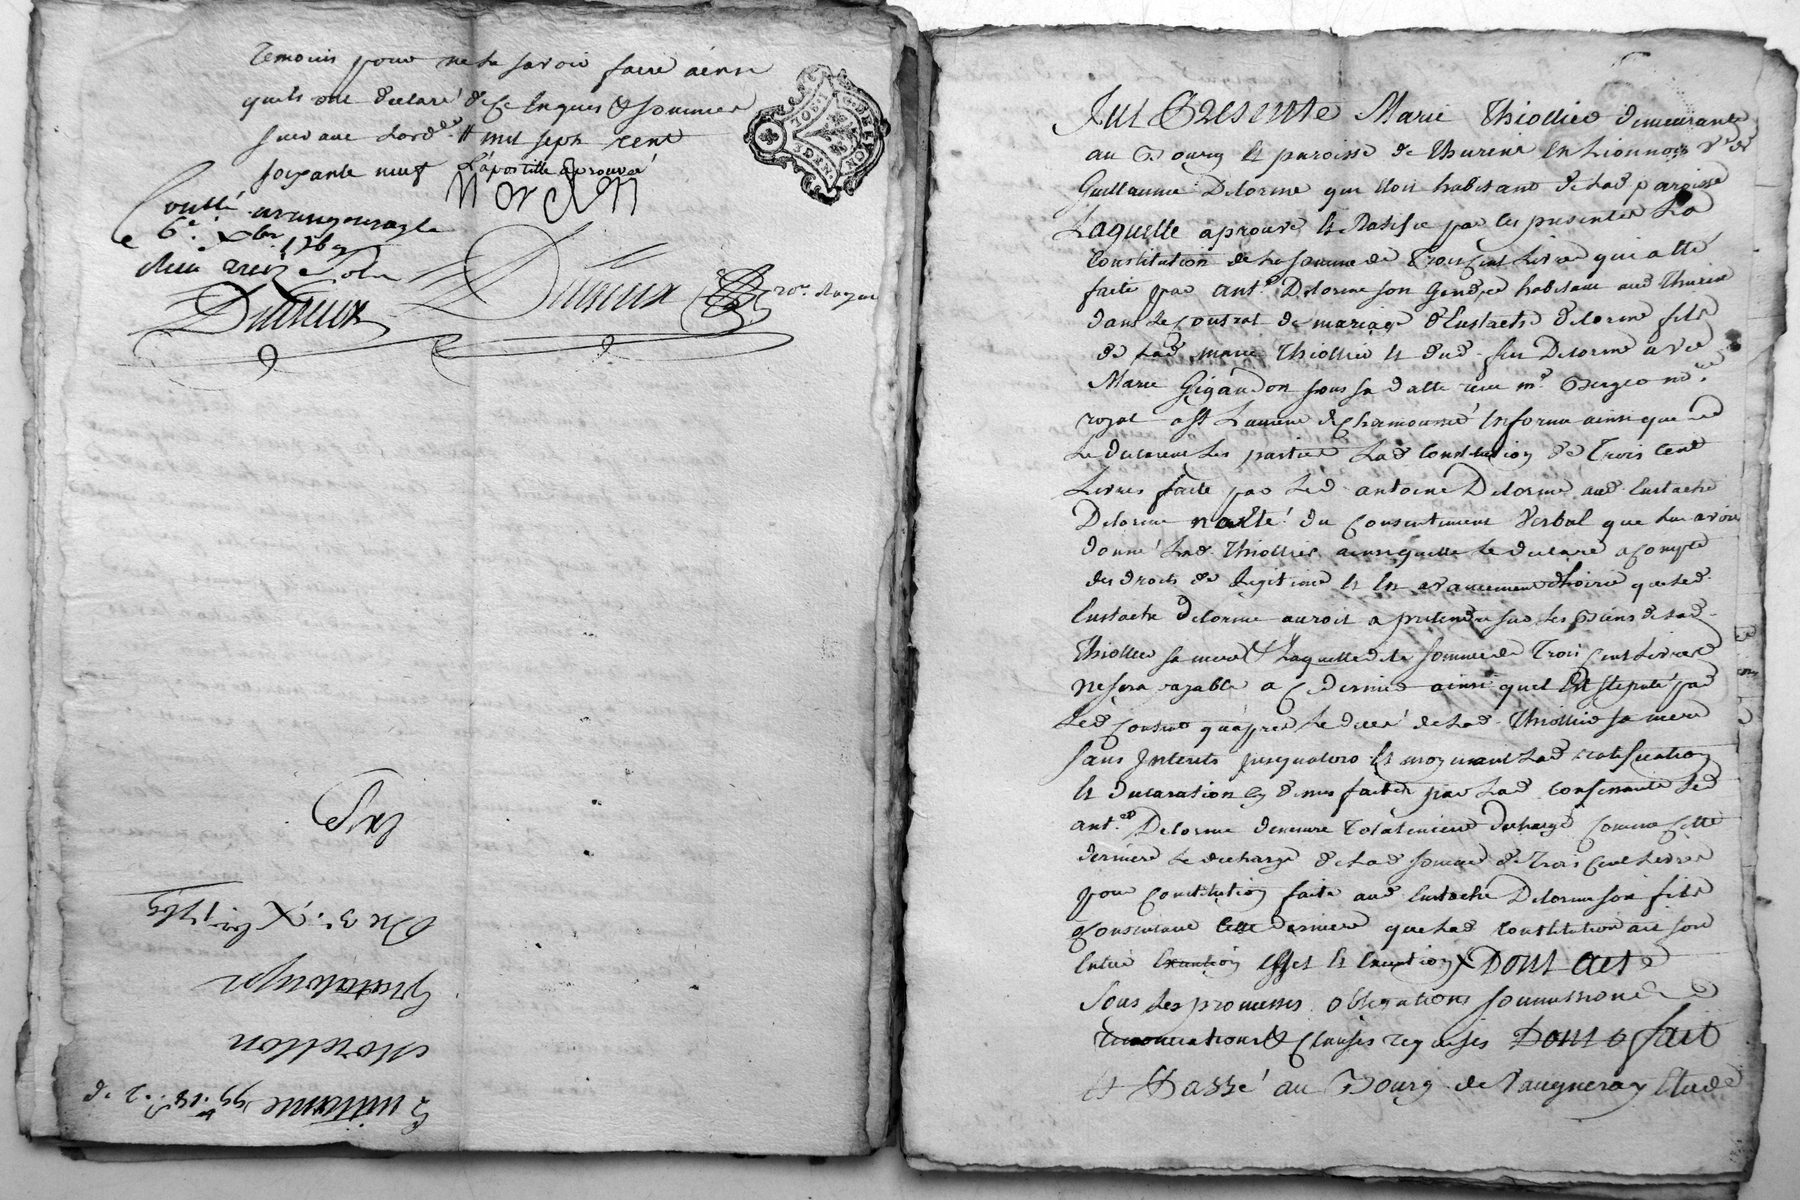 temoins pour ne le savoir faire ainsi
quils ont declaré de ce Enquis & sommés
suivant Lord.ce # mil sept cent
soixante neuf L'apostille aprouvé
morelon
Controllé a vaugneray le
6.e Xbre 1769
Reçu treize sols
Dutreux Dutreux no.re Royal
GEN. DE LYON
Du 3.e Xbre 1769
Quittance
morellon
Fut Presente Marie Thiollier demeurante
au Bourg et paroisse de thurins en Lionnois v.e de
Guillaume Delorme qui etoit habitant de lad. paroisse
Laquelle aprouve et Ratifie par les presentes La
Constitution de la somme de Trois Cent Livres qui a eté
faite par ant.e Delorme son Gendre habitant aud. Thurins
dans Le Contrat de mariage d'Eustache delorme fils
de Lad. marie Thiollier et dud. feu Delorme avec
Marie Gigandon sous sa datte reçu m.e Berger no.re
royal
Le declarent Les parties Lad. Constitution de Trois Cent
Livres faite par Led. antoine Delorme aud. Eustache
Delorme n'a eté du Consentement verbal que luy avoit
donné Lad. Thiollier, ainsy quelle le declare a Compte
des droits de Legitime et en avancement d'hoirie que led.
Eustache delorme auroit a pretendre sur Les Biens de Lad.
Thiollier sa mere & Laquelle de somme de Trois Cent Livres
ne sera payable a ce Dernier ainsi quil Est stipulé par
Led. Contrat qu'apres Le decès de Lad. Thiollier sa mere
sans Interets jusqualors et moyenant Lad. ratification
et declaration cy dessus faites par Lad. consentante Led.
ant.e Delorme demeure totalement dechargé comme Cette
derniere le decharge de Lad. somme de Trois Cent Livres
pour Constitution faite aud. Eustache Delorme son fils
Consentant Cette derniere que Lad. Constitution ait son
Entier Execution effet et Execution / Dont acte
sous Les promesses obligations soumissions
renonciations & Clauses requises Dont o fait
et Passé au Bourg de Vaugneray Etude